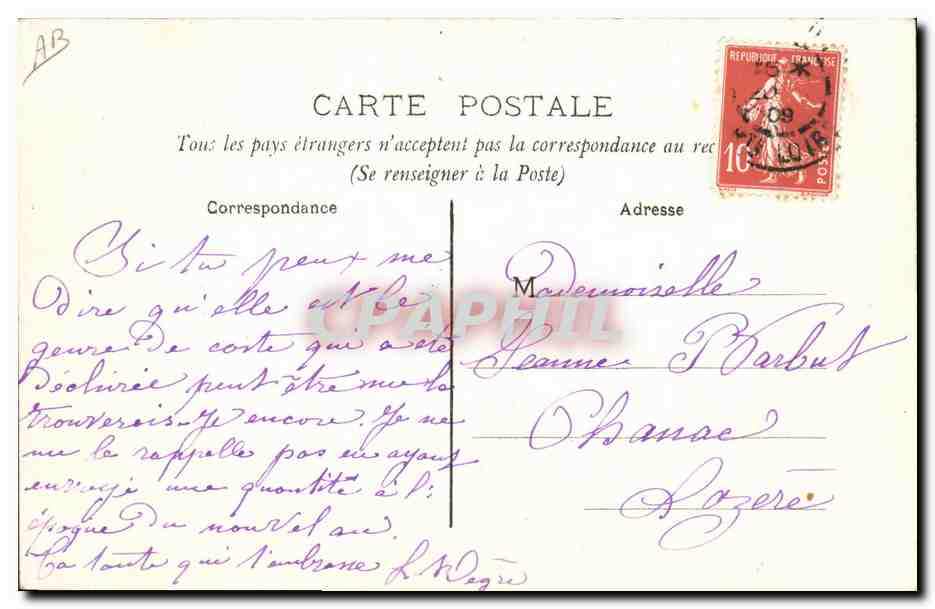 AB
REPUBLIQUE FRANÇAISE
10
POSTES
09
CARTE POSTALE
Tous les pays étrangers n'acceptent pas la correspondance au rec
(Se renseigner à la Poste)
Correspondance
Si tu peux me
dire qu'elle est le
genre de carte que a été
déchirée peut être me la
trouverais-je encore. Je ne
me le rappelle pas en ayant
envoyé une quantité à l'
époque du nouvel an
Ta tante qui t'embrasse
Adresse
Mademoiselle
Jeanne
Chanac
Lozère
CPAPHIL